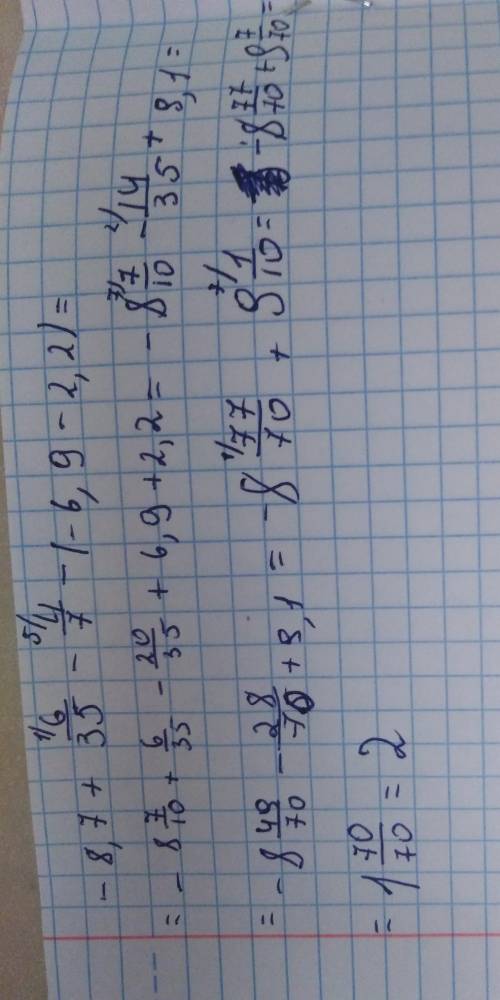 - 8,7 + ¹⁄ 6/35 - ⁵⁄ 4/7 - (-6,9 - 2,2) =
= - 8 ⁷⁄ 7/10 + 6/35 - 20/35 + 6,9 + 2,2 = - 8 7/10 - ²⁄ 14/35 + 9,1 =
= - 8 49/70 - 28/70 + 9,1 = - 8 ¹⁄ 77/70 + 9 ⁷⁄ 1/10 = - 8 77/70 + 9 7/70 =
= 1 70/70 = 2